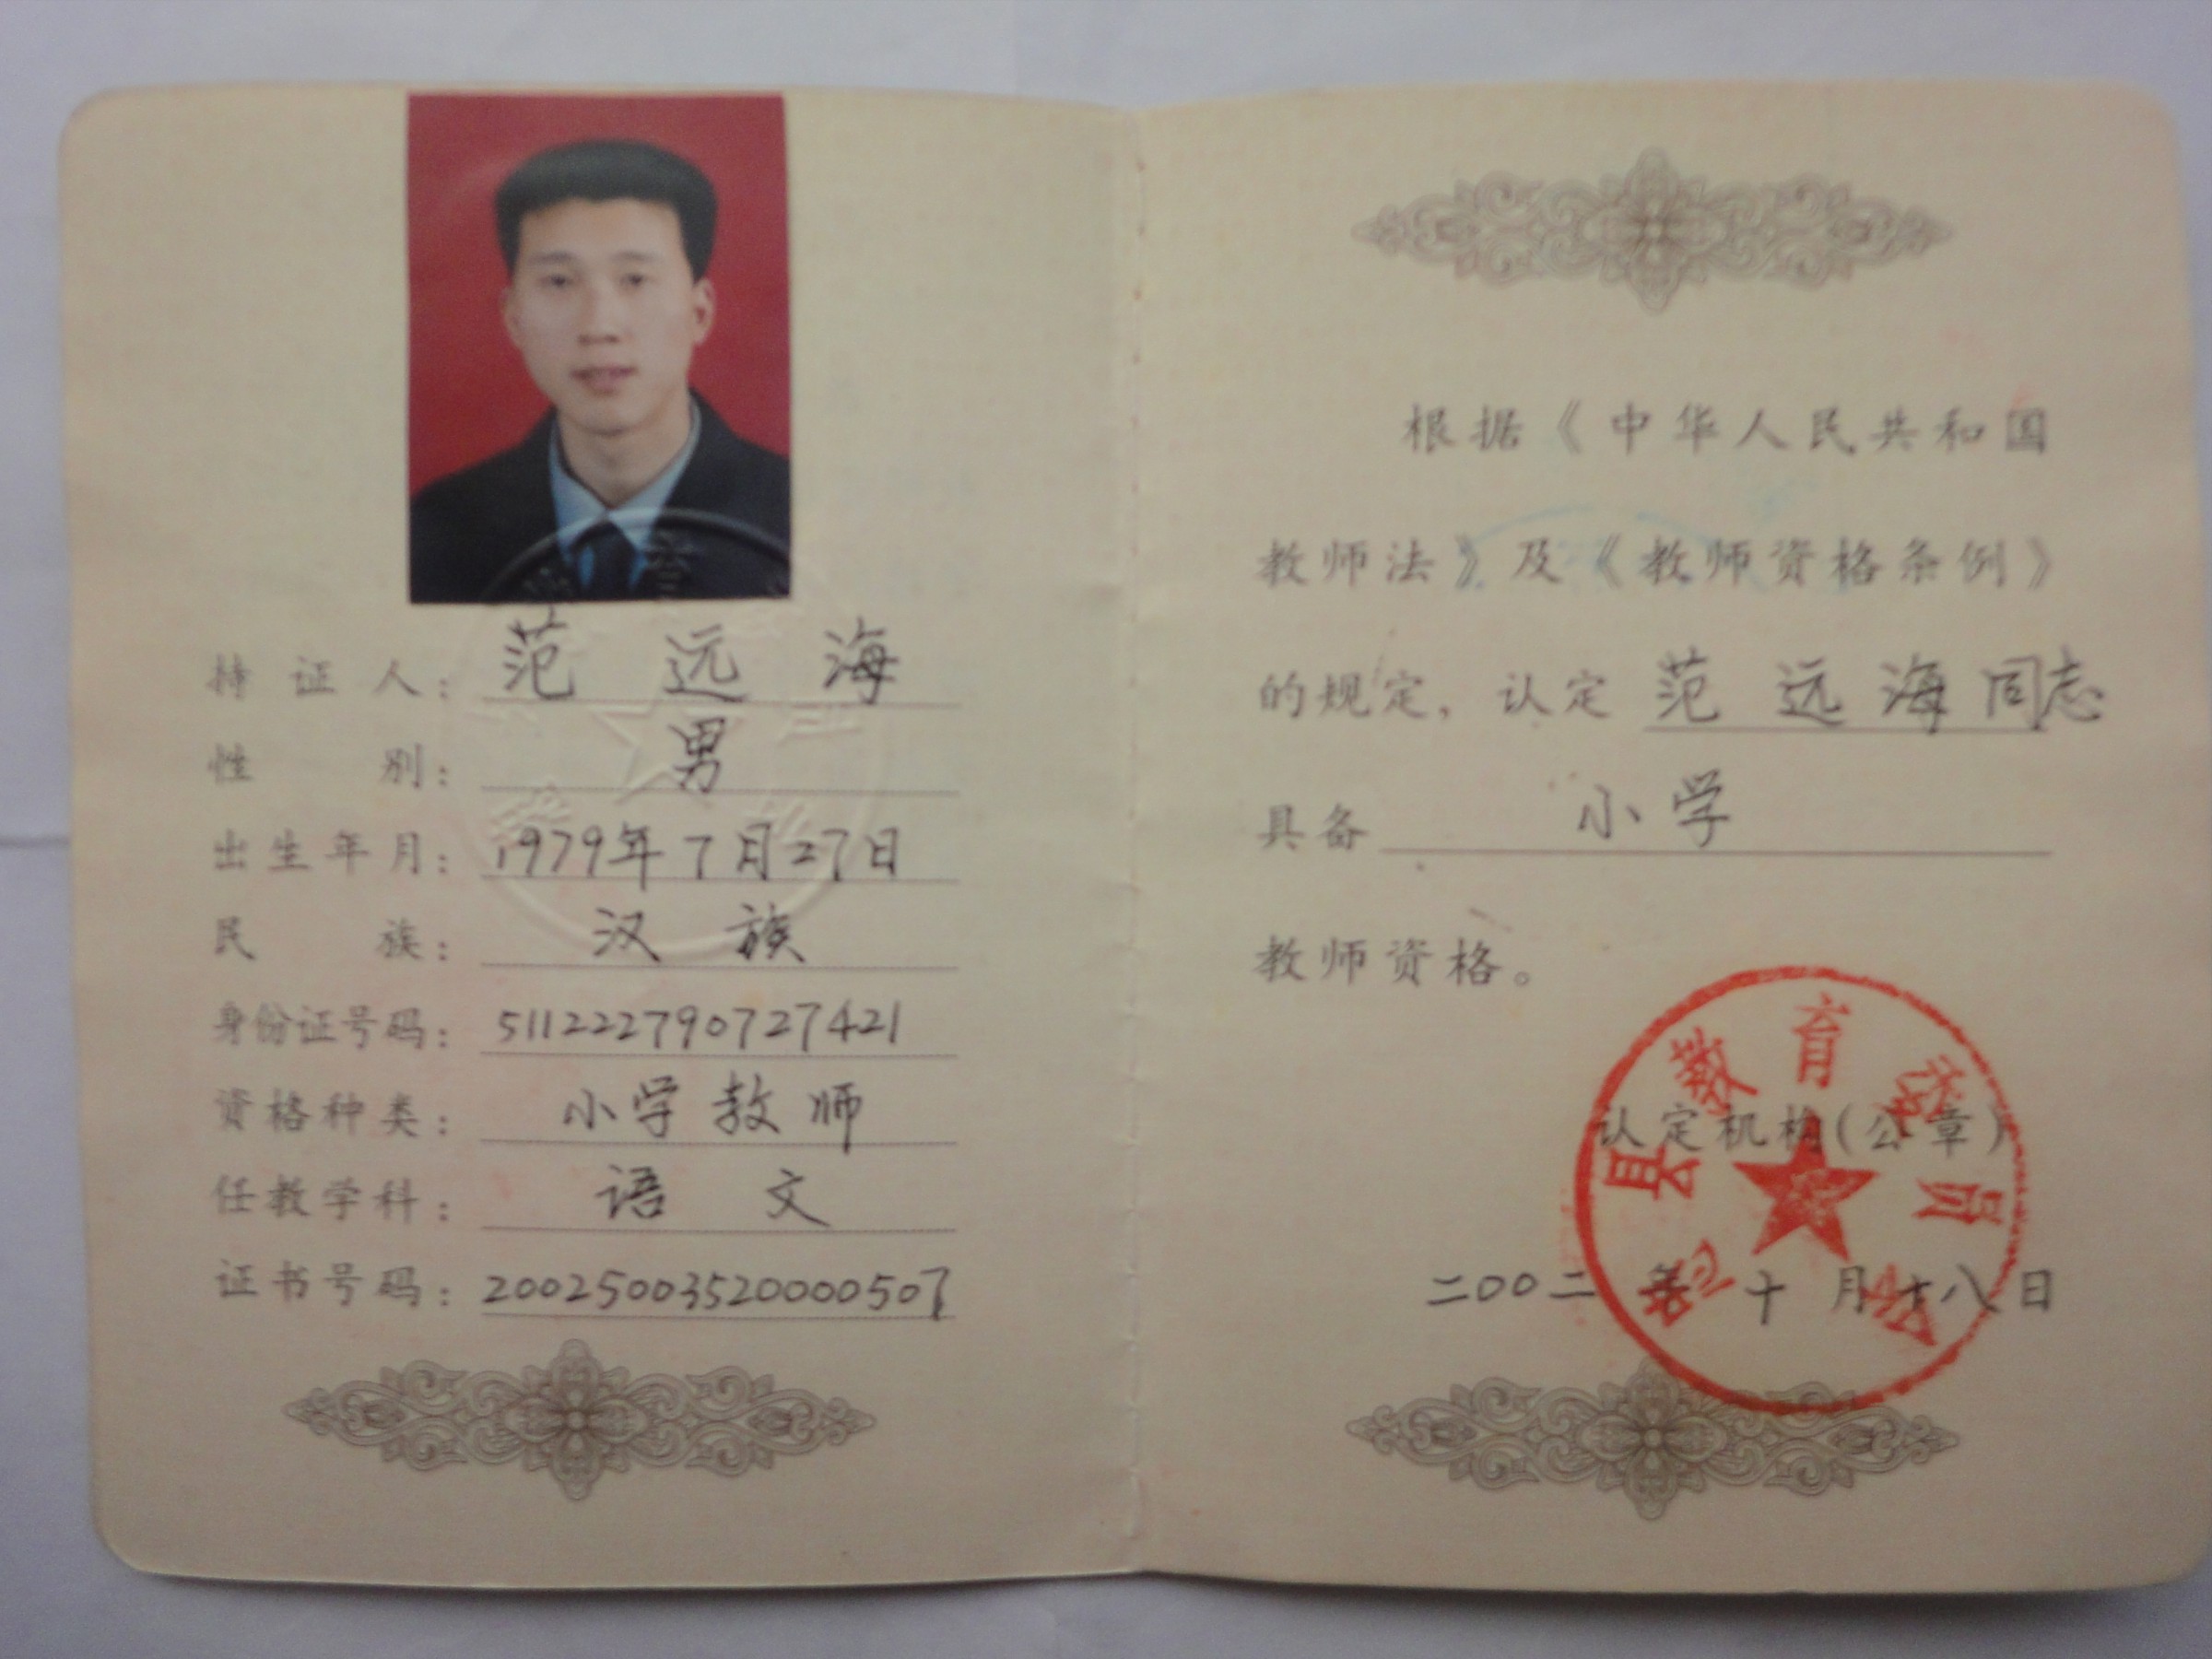 持证人：范远海
性别：男
出生年月：1979年7月27日
民族：汉族
身份证号码：511222790727421
资格种类：小学教师
任教学科：语文
证书号码：20025003520000507
根据《中华人民共和国
教师法》及《教师资格条例》
的规定，认定 范远海同志
具备 小学
教师资格。
县教育委员会
认定机构(公章)
二00二年十月十八日